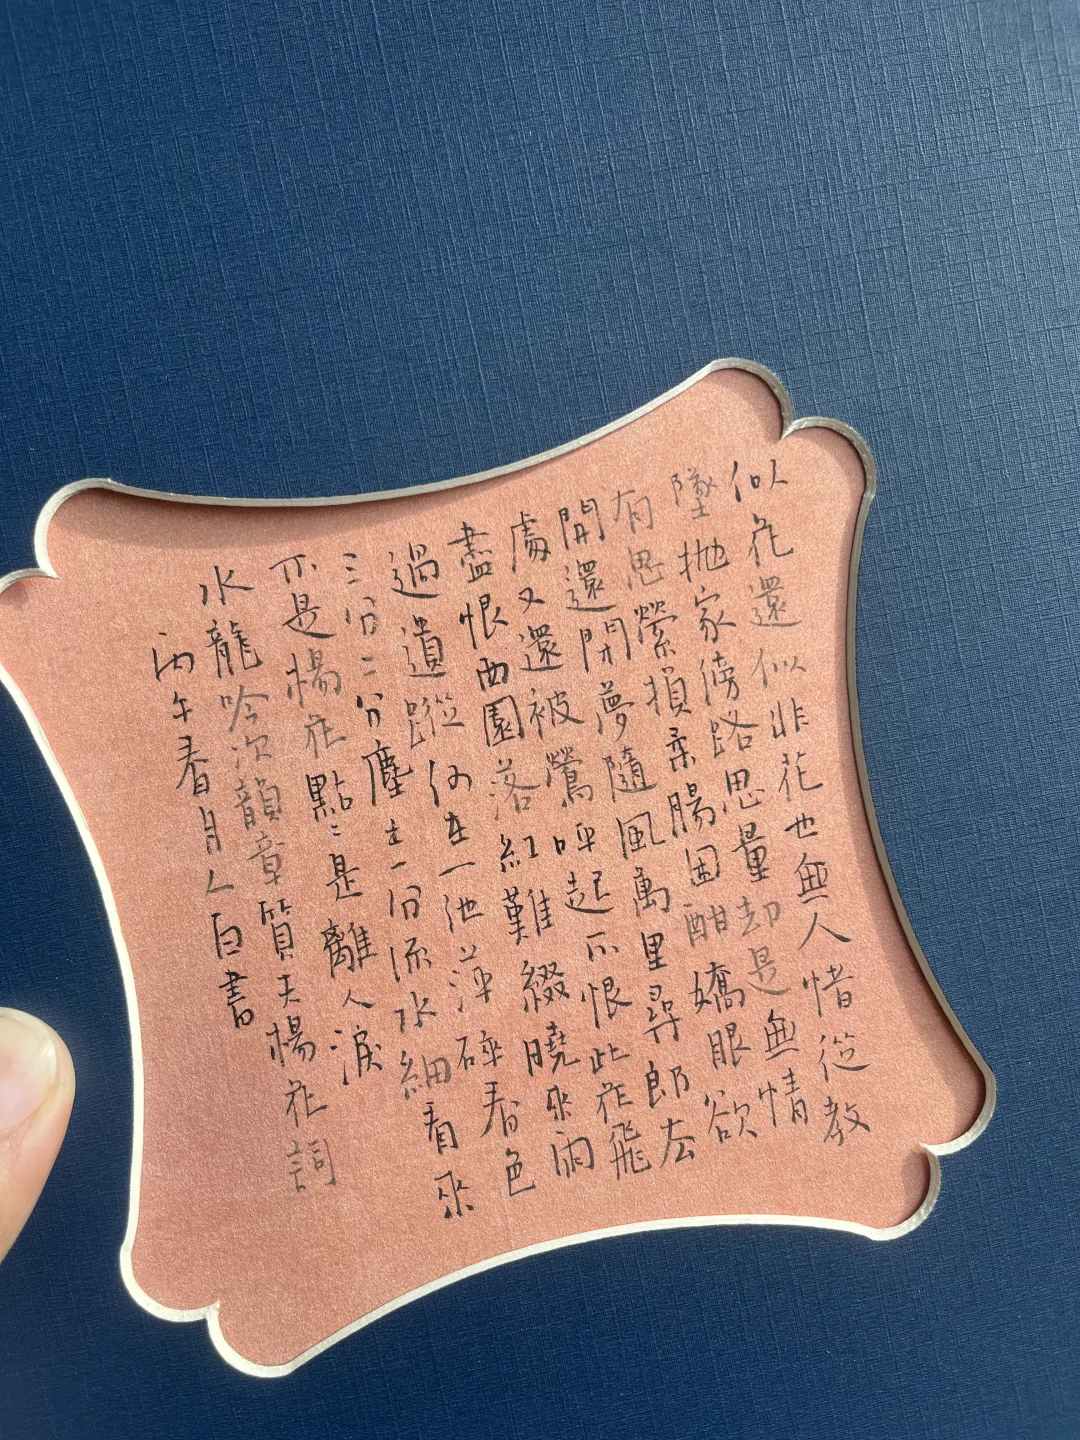 似花還似非花也無人惜從教
墜拋家傍路思量却是無情
有思縈損柔腸困酣嬌眼欲
開還閉夢隨風萬里尋郎去
處又還被鶯呼起不恨此花飛
盡恨西園落紅難綴曉來雨
過遺蹤何在一池萍碎春色
三分二分塵土一分流水細看來
不是楊花點〻是離人淚
水龍吟次韻章質夫楊花詞
丙午春月人白書